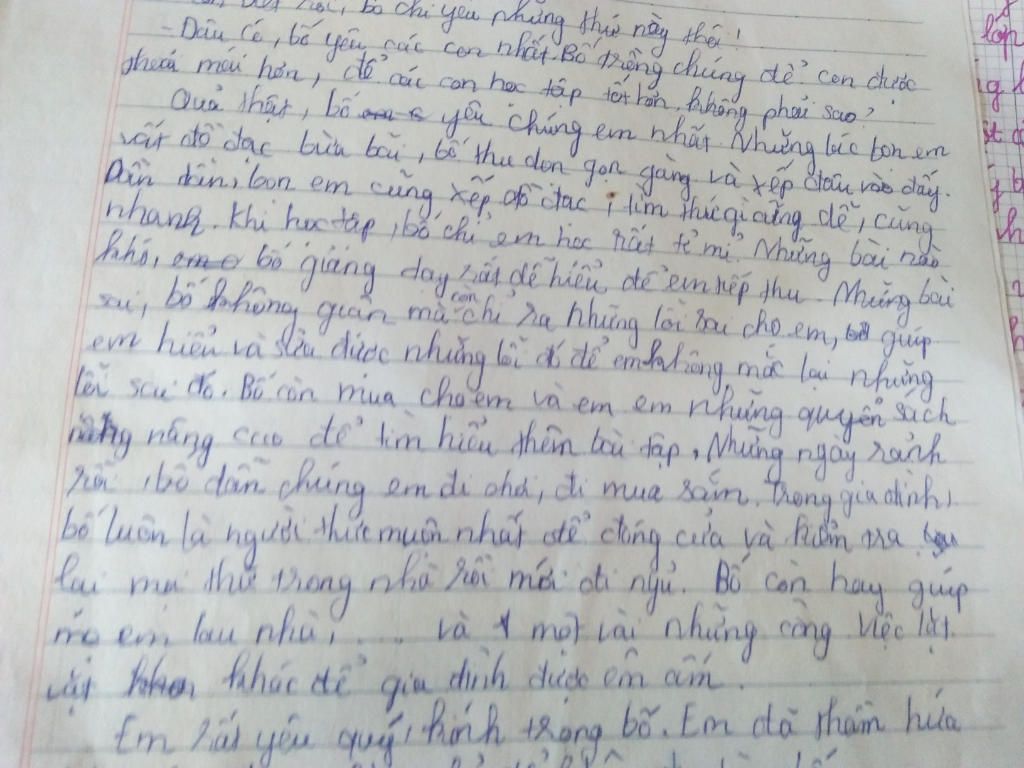 bố chỉ yêu những thứ này thôi!
- Đâu có, bố yêu các con nhất. Bố trồng chúng để con được
thoải mái hơn, để các con học tập tốt hơn, không phải sao?
Quả thật, bố yêu chúng em nhất. Những lúc bọn em
vứt đồ đạc bừa bãi, bố thu dọn gọn gàng và xếp đâu vào đấy.
Dần dần, bọn em cũng xếp đồ đạc, tìm thứ gì cũng dễ, cũng
nhanh. Khi học tập, bố chỉ em học rất tỉ mỉ. Những bài nào
khó, bố giảng dạy rất dễ hiểu để em tiếp thu. Những bài
sai, bố không quên mà còn chỉ ra những lỗi sai cho em, giúp
em hiểu và sửa được những lỗi đó để em không mắc lại những
lỗi sai đó. Bố còn mua cho em và em em những quyển sách
nâng cao để tìm hiểu thêm bài tập. Những ngày rảnh
rỗi, bố dẫn chúng em đi chơi, đi mua sắm. Trong gia đình,
bố luôn là người thức muộn nhất để đóng cửa và kiểm tra
lại mọi thứ trong nhà rồi mới đi ngủ. Bố còn hay giúp
mẹ em lau nhà, .... và 1 một vài những công việc lặt
vặt khác để gia đình được êm ấm.
Em rất yêu quý, kính trọng bố. Em đã thầm hứa